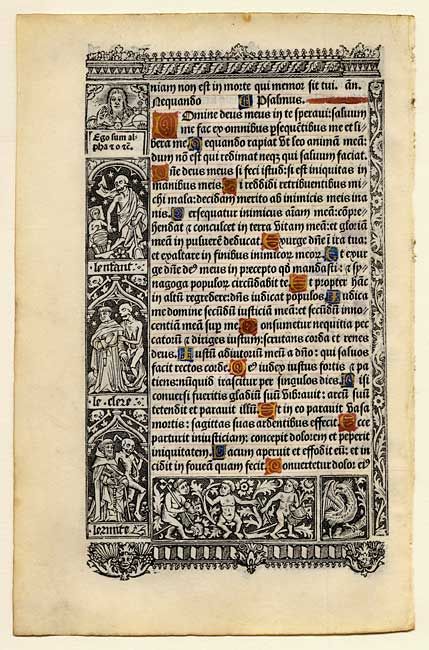 niam non est in morte qui memor sit tui. añ.
Nequando Psalmus.
Domine deus meus in te speravi: salvum
me fac ex omnibus p̱sequētibus me et li
bera me Nequando rapiat vt leo animā meā:
dum nō est qui redimat neqz qui salvum faciat.
Dñe deus meus si feci istud: si est iniquitas in
manibus meis. Si reddidi retribuentibus mi
chi mala: decidam merito ab inimicis meis ina
nis. Persequatur inimicus aīam meā: cōpre
hendat & conculcet in terra vitam meā: et gloriā
meā in pulverē deducat. Exurge dñe ī ira tua:
et exaltare in finibus inimicoꝝ meoꝝ. Et exur
ge dñe de⁹ meus in precepto qd mandasti: & sy
nagoga populoꝝ circūdabit te. Et propter hāc
in altū regredere: dñs iudicat populos. Iudica
me domine secūdū iusticiā meā: et secūdū inno
centiā meā sup me Consumetur nequitia pec
catoꝝ & diriges iustum: scrutans corda et renes
deus. Iustū adiutoriū meū a dño: qui salvos
facit rectos corde. Deus iudex iustus fortis & pa
tiens: nūquid irascitur per singulos dies. Nisi
conversi fueritis gladiū suū vibravit: arcū suū
tetendit et paravit illū. Et in eo paravit vasa
mortis: sagittas suas ardentibus effecit. Ecce
parturit iniusticiam: concepit dolorem et peperit
iniquitatem. Lacum aperuit et effodit eū: et in
cidit in foveā quam fecit. Convertetur dolor ei⁹
Ego sum al
pha & o. cē.
lenfant
le clerc
lermite